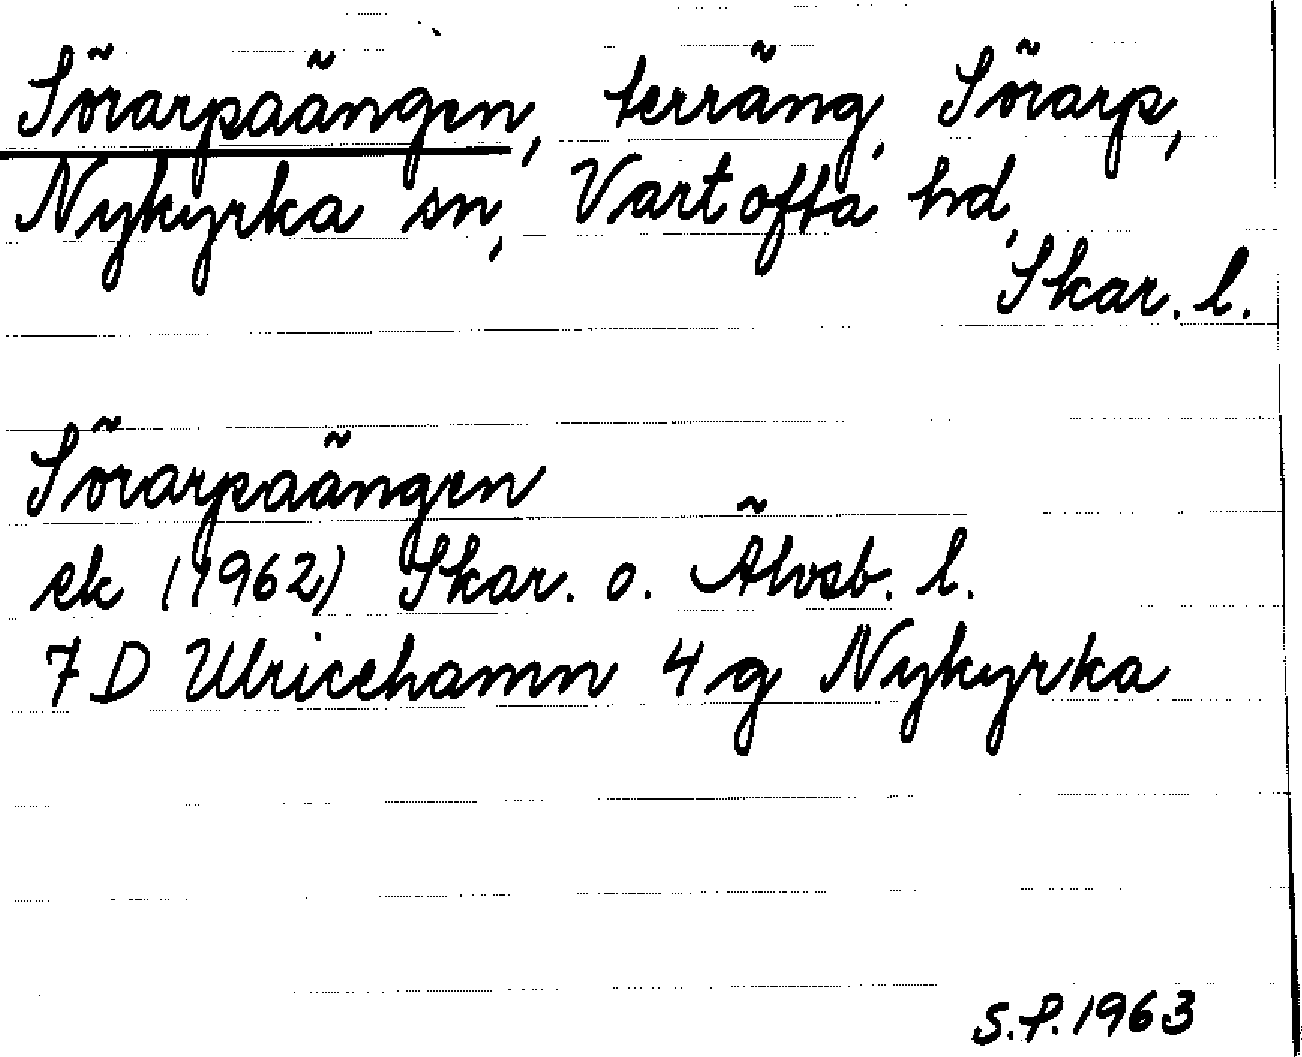 Sörarpaängen, terräng, Sörarp,
Nykyrka sn, Vartofta hd,
Skar. l.
Sörarpaängen
ek (1962) Skar. o. Älvsb. l.
7 D Ulricehamn 4 g Nykyrka
S.P. 1963